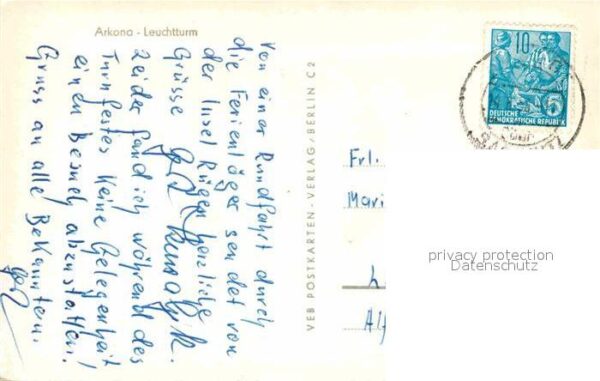 Arkona - Leuchtturm
Von einer Rundfahrt durch
die Ferienläger sendet von
der Insel Rügen herzliche
Grüsse
Leider fand ich während des
Turnfestes keine Gelegenheit
einen Besuch abzustatten!
Gruss an alle Bekannten.
VEB POSTKARTEN-VERLAG/BERLIN C2
10
DEUTSCHE
DEMOKRATISCHE REPUBLIK
Frl.
Mari
privacy protection
Datenschutz